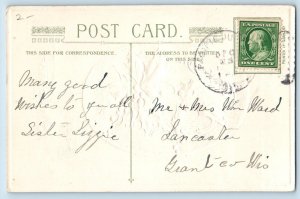 2-
POST CARD.
THIS SIDE FOR CORRESPONDENCE.
THE ADDRESS TO BE WRITTEN ON THIS SIDE.
U.S. POSTAGE
ONE CENT
Many good
wishes to you all
Sister Lizzie
Mr & Mrs Wm Ward
Lancaster
Grant co Wis